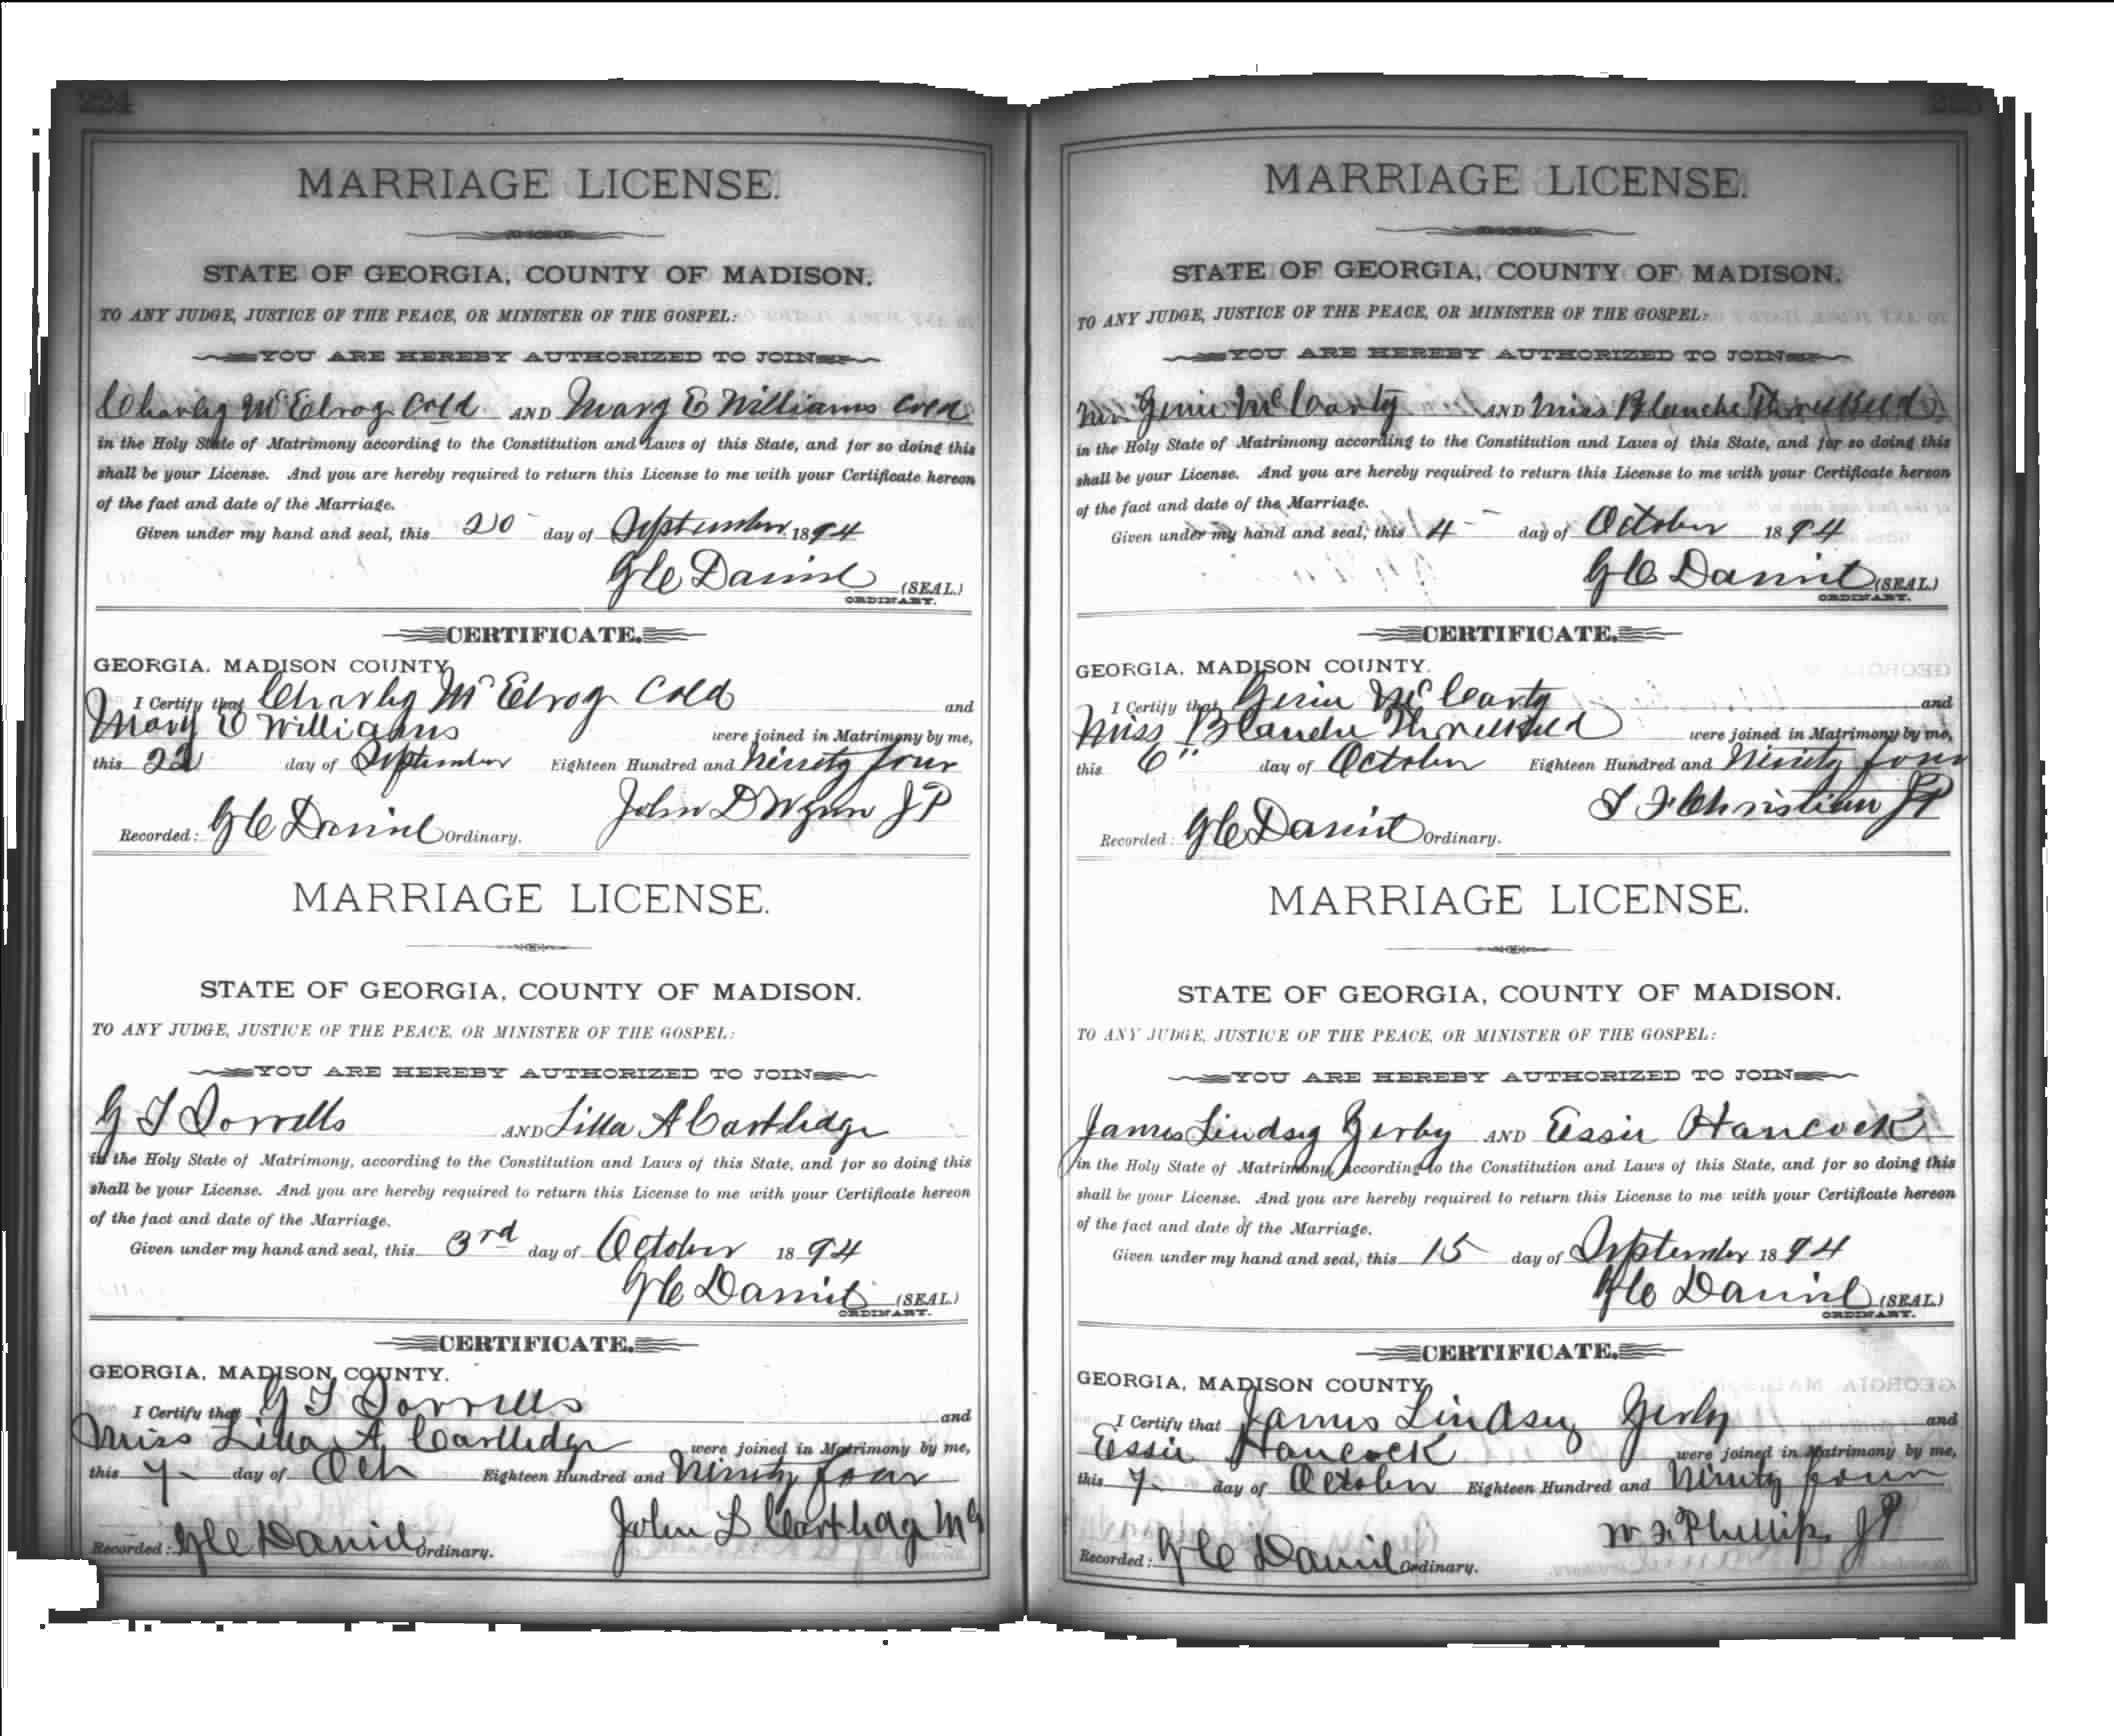 224
MARRIAGE LICENSE.
STATE OF GEORGIA, COUNTY OF MADISON.
TO ANY JUDGE, JUSTICE OF THE PEACE, OR MINISTER OF THE GOSPEL:
YOU ARE HEREBY AUTHORIZED TO JOIN
Charley McElroy Cold AND Mary E Williams Cold
in the Holy State of Matrimony according to the Constitution and Laws of this State, and for so doing this
shall be your License. And you are hereby required to return this License to me with your Certificate hereon
of the fact and date of the Marriage.
Given under my hand and seal, this 20 day of September 1894
G C Daniel (SEAL.)
ORDINARY.
CERTIFICATE.
GEORGIA, MADISON COUNTY.
I Certify that Charley McElroy Cold and
Mary E Williams were joined in Matrimony by me,
this 22 day of September Eighteen Hundred and Ninety four
John D Wynn J P
Recorded: G C Daniel Ordinary.
MARRIAGE LICENSE.
STATE OF GEORGIA, COUNTY OF MADISON.
TO ANY JUDGE, JUSTICE OF THE PEACE, OR MINISTER OF THE GOSPEL:
YOU ARE HEREBY AUTHORIZED TO JOIN
G T Sorrells AND Lilla A Cartledge
in the Holy State of Matrimony, according to the Constitution and Laws of this State, and for so doing this
shall be your License. And you are hereby required to return this License to me with your Certificate hereon
of the fact and date of the Marriage.
Given under my hand and seal, this 3rd day of October 1894
G C Daniel (SEAL.)
ORDINARY.
CERTIFICATE.
GEORGIA, MADISON COUNTY.
I Certify that G T Sorrells and
Miss Lilla A Cartledge were joined in Matrimony by me,
this 7 day of Oct Eighteen Hundred and Ninety four
John L Cartledge MG
Recorded: G C Daniel Ordinary.
225
MARRIAGE LICENSE.
STATE OF GEORGIA, COUNTY OF MADISON.
TO ANY JUDGE, JUSTICE OF THE PEACE, OR MINISTER OF THE GOSPEL:
YOU ARE HEREBY AUTHORIZED TO JOIN
Mr Genie McCarty AND Miss Blanche Threlkeld
in the Holy State of Matrimony according to the Constitution and Laws of this State, and for so doing this
shall be your License. And you are hereby required to return this License to me with your Certificate hereon
of the fact and date of the Marriage.
Given under my hand and seal, this 4 day of October 1894
G C Daniel (SEAL.)
ORDINARY.
CERTIFICATE.
GEORGIA, MADISON COUNTY.
I Certify that Genie McCarty and
Miss Blanche Threlkeld were joined in Matrimony by me,
this 6" day of October Eighteen Hundred and Ninety four
Christian JP
Recorded: G C Daniel Ordinary.
MARRIAGE LICENSE.
STATE OF GEORGIA, COUNTY OF MADISON.
TO ANY JUDGE, JUSTICE OF THE PEACE, OR MINISTER OF THE GOSPEL:
YOU ARE HEREBY AUTHORIZED TO JOIN
James Lindsey Yerby AND Essie Hancock
in the Holy State of Matrimony, according to the Constitution and Laws of this State, and for so doing this
shall be your License. And you are hereby required to return this License to me with your Certificate hereon
of the fact and date of the Marriage.
Given under my hand and seal, this 15 day of September 1894
G C Daniel (SEAL.)
ORDINARY.
CERTIFICATE.
GEORGIA, MADISON COUNTY.
I Certify that James Lindsey Yerby and
Essie Hancock were joined in Matrimony by me,
this 7 day of October Eighteen Hundred and Ninety four
W F Phillips J P
Recorded: G C Daniel Ordinary.